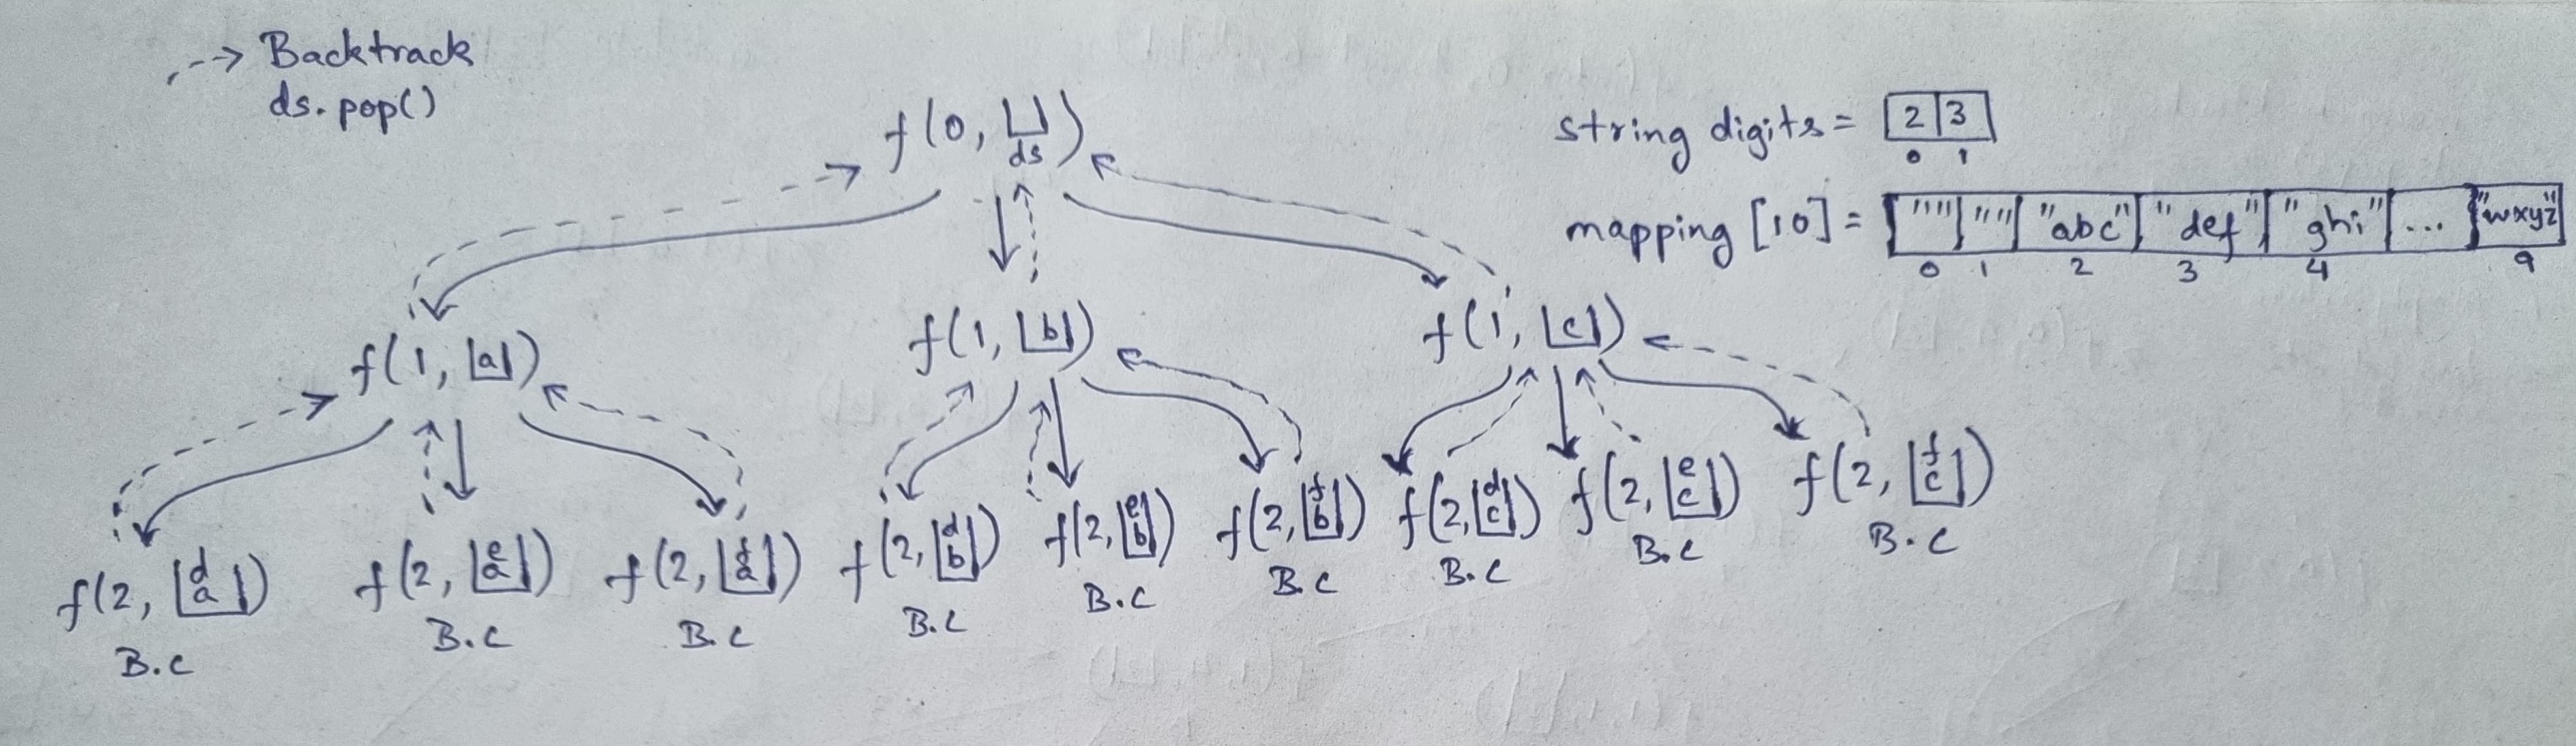 --> Backtrack
ds.pop()
f(0, ds)
string digits = 2 3
0 1
mapping [10] = "" "" "abc" "def" "ghi" ... "wxyz"
0 1 2 3 4 9
f(1, a)
f(1, b)
f(1, c)
f(2, d a)
B.C
f(2, e a)
B.C
f(2, f a)
B.C
f(2, d b)
B.C
f(2, e b)
B.C
f(2, f b)
B.C
f(2, d c)
B.C
f(2, e c)
B.C
f(2, f c)
B.C